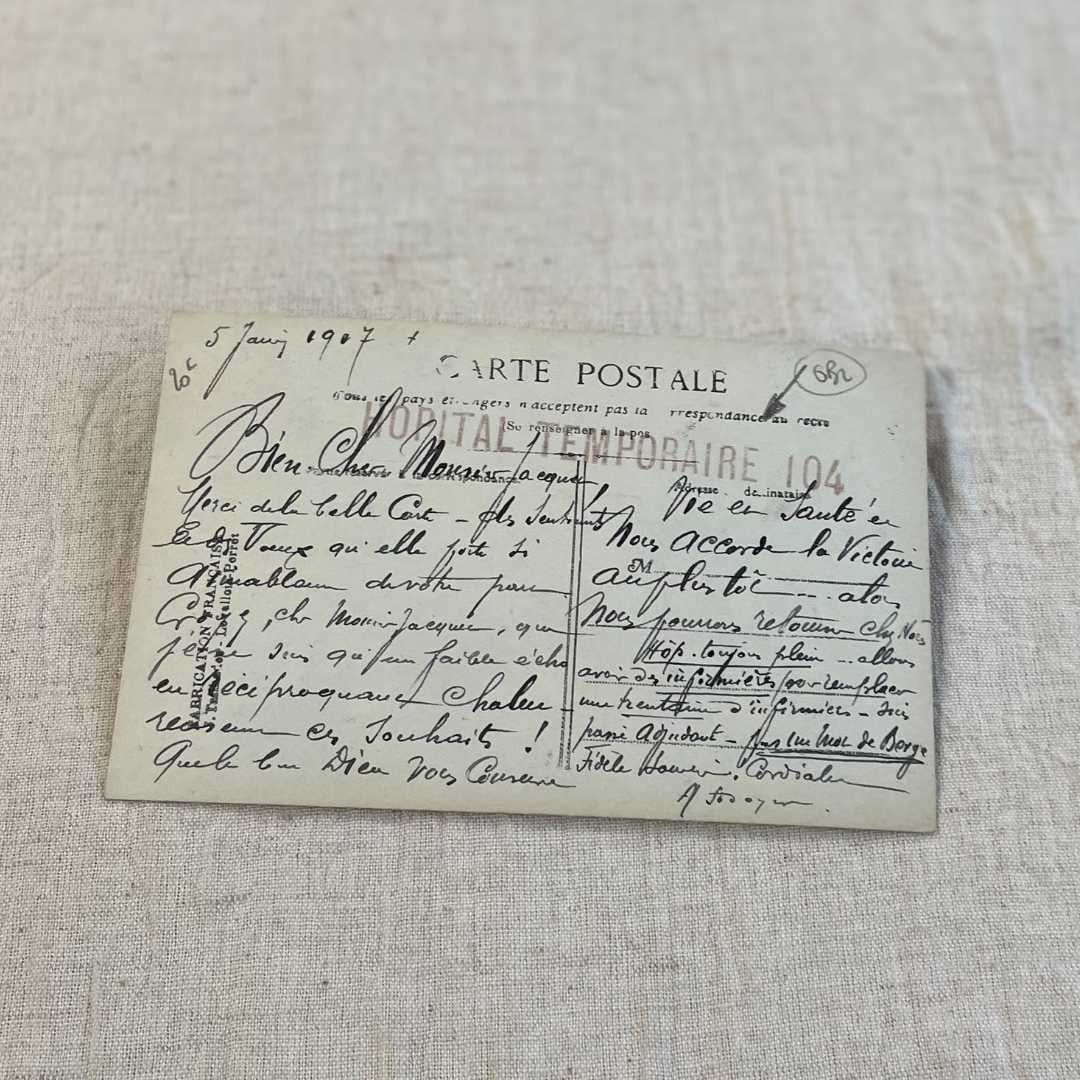 5 Janv 1917 +
CARTE POSTALE
Tous les pays étrangers n'acceptent pas la correspondance au recto
Se renseigner à la poste
HOPITAL TEMPORAIRE 104
Bien Cher Monsieur Jacques
Merci de la belle Carte -
Vœux qu'elle porte si
aimablement de votre part.
cher Monsieur Jacques, que
je ne suis qu'un faible écho
en réciproquant
ces Souhaits !
Que le bon Dieu Vous Conserve
FABRICATION FRANÇAISE
Levallois-Perret
Adresse du destinataire
Vie et Santé et
Nous accorde la Victoire
M
au plus tôt ... alors
Nous pourrons retourner chez Nous
Hôp. toujours plein ... allons
avoir des infirmières pour remplacer
une trentaine d'infirmiers - suis
passé Adjudant - pas un mot de Berge
Fidèle souvenir. Cordial